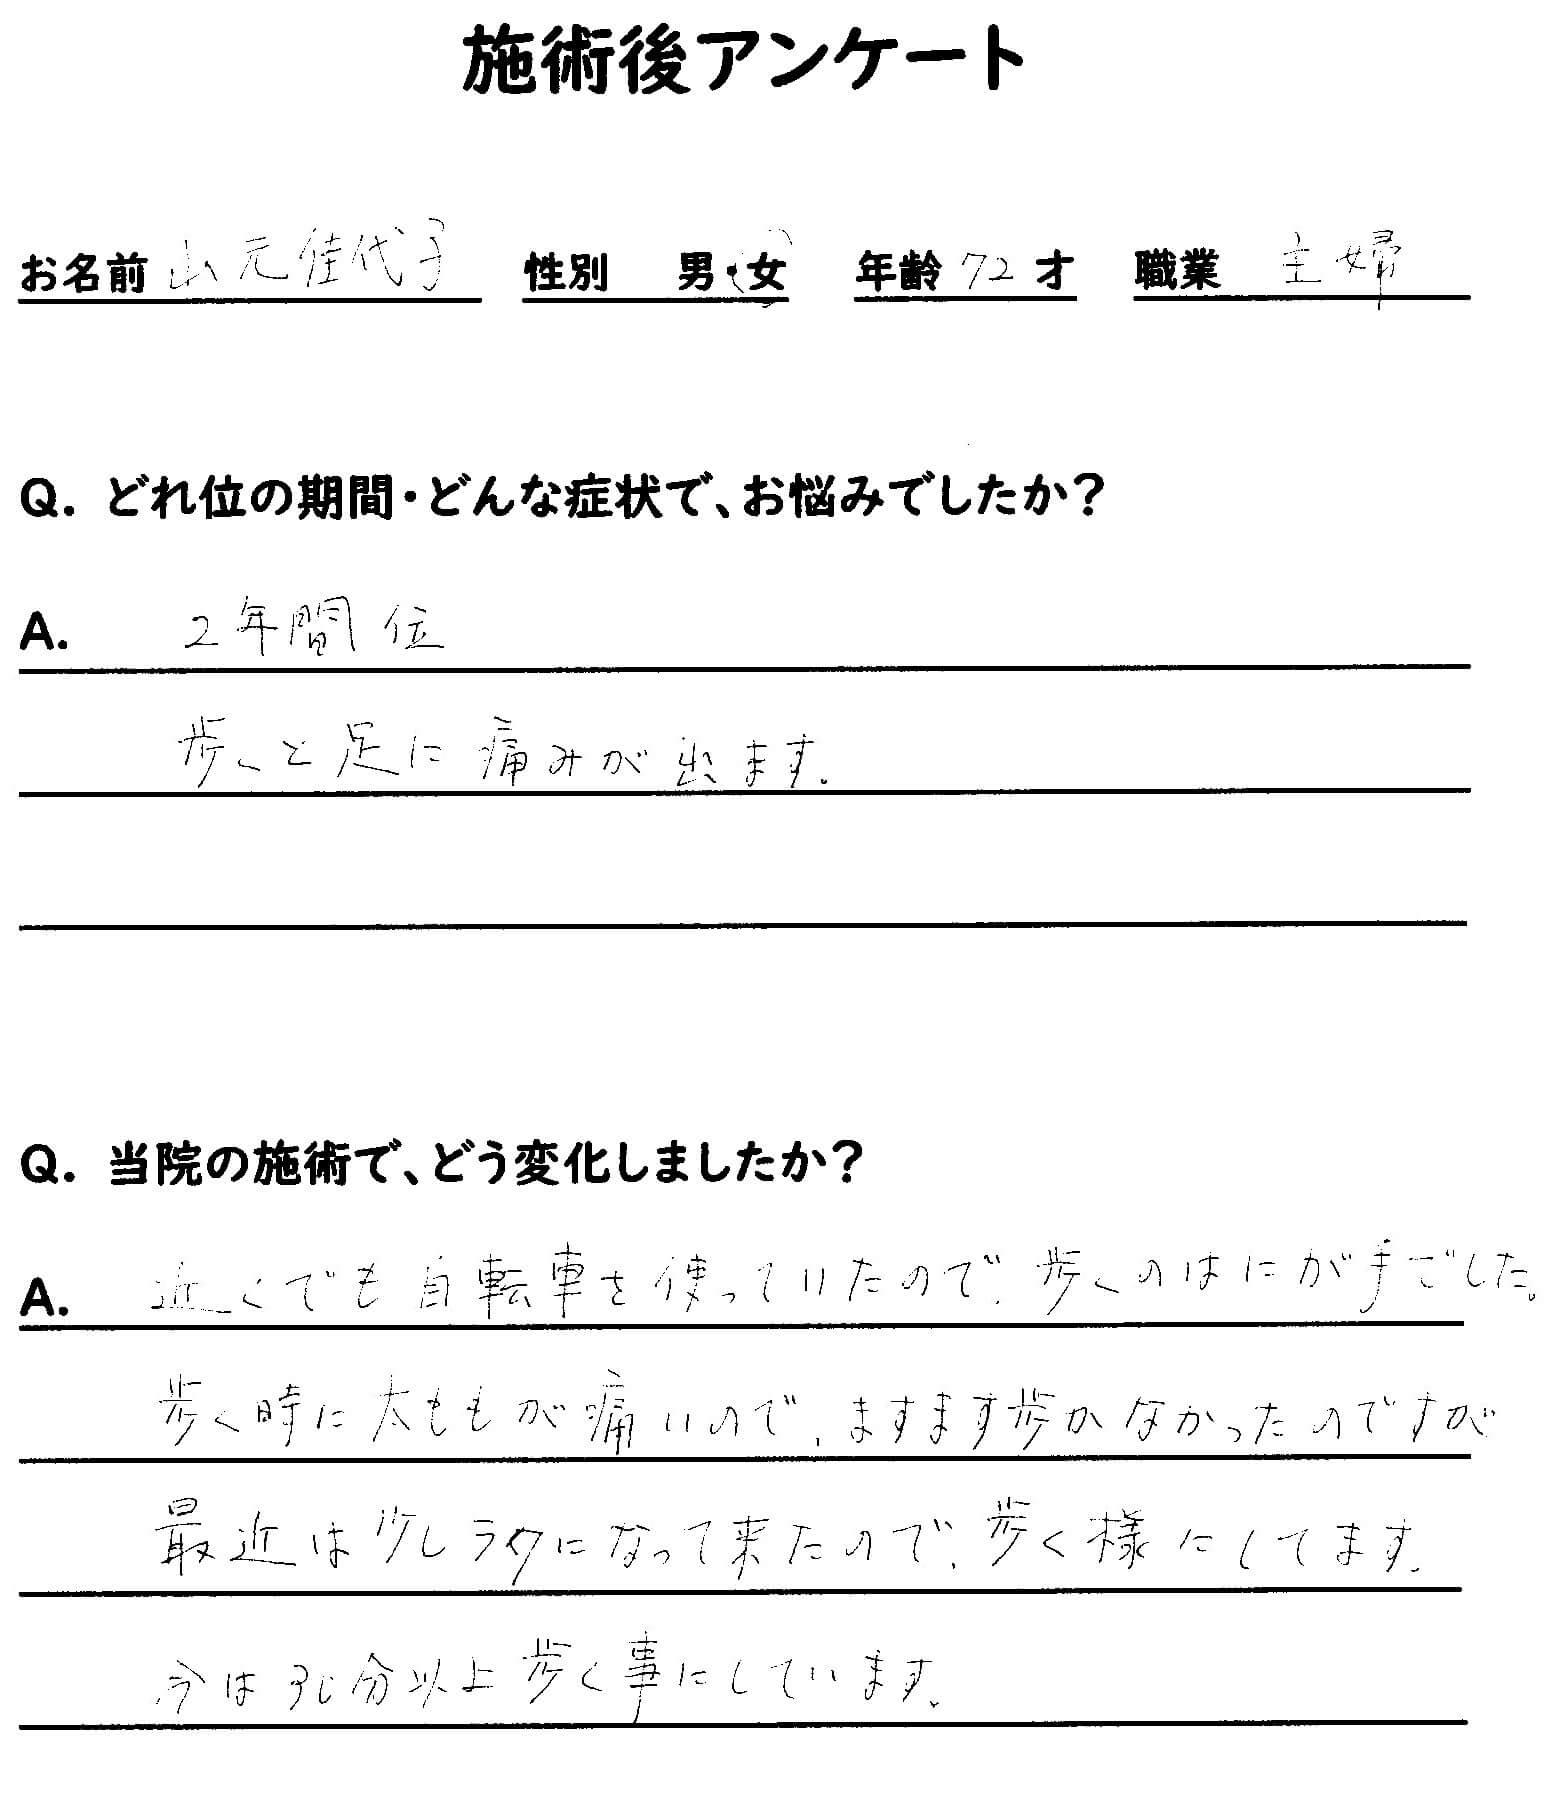 施術後アンケート
お名前 山元佳代子 性別 男・女 年齢 72 才 職業 主婦
Q. どれ位の期間・どんな症状で、お悩みでしたか？
A. 2年間位
歩くと足に痛みが出ます。
Q. 当院の施術で、どう変化しましたか？
A. 近くでも自転車を使っていたので、歩くのはにが手でした。
歩く時に太ももが痛いので、ますます歩かなかったのですが
最近は少しラクになって来たので、歩く様にしてます。
今は30分以上歩く事にしています。